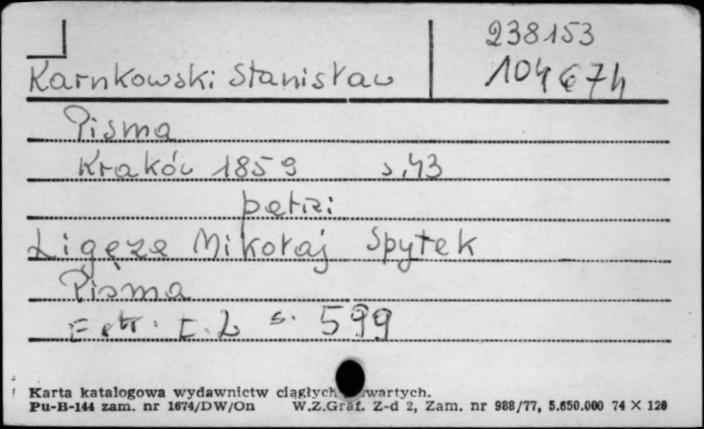 238153
Karnkowski Stanisław 104674
Pisma
Kraków 1859 s. 43
patrz:
Ligęza Mikołaj Spytek
Pisma
Estr. t. 2 s. 599
Karta katalogowa wydawnictw ciągłych wartych.
Pu-B-144 zam. nr 1674/DW/On W.Z.Graf. Z-d 2, Zam. nr 988/77, 5.650.000 74 X 120